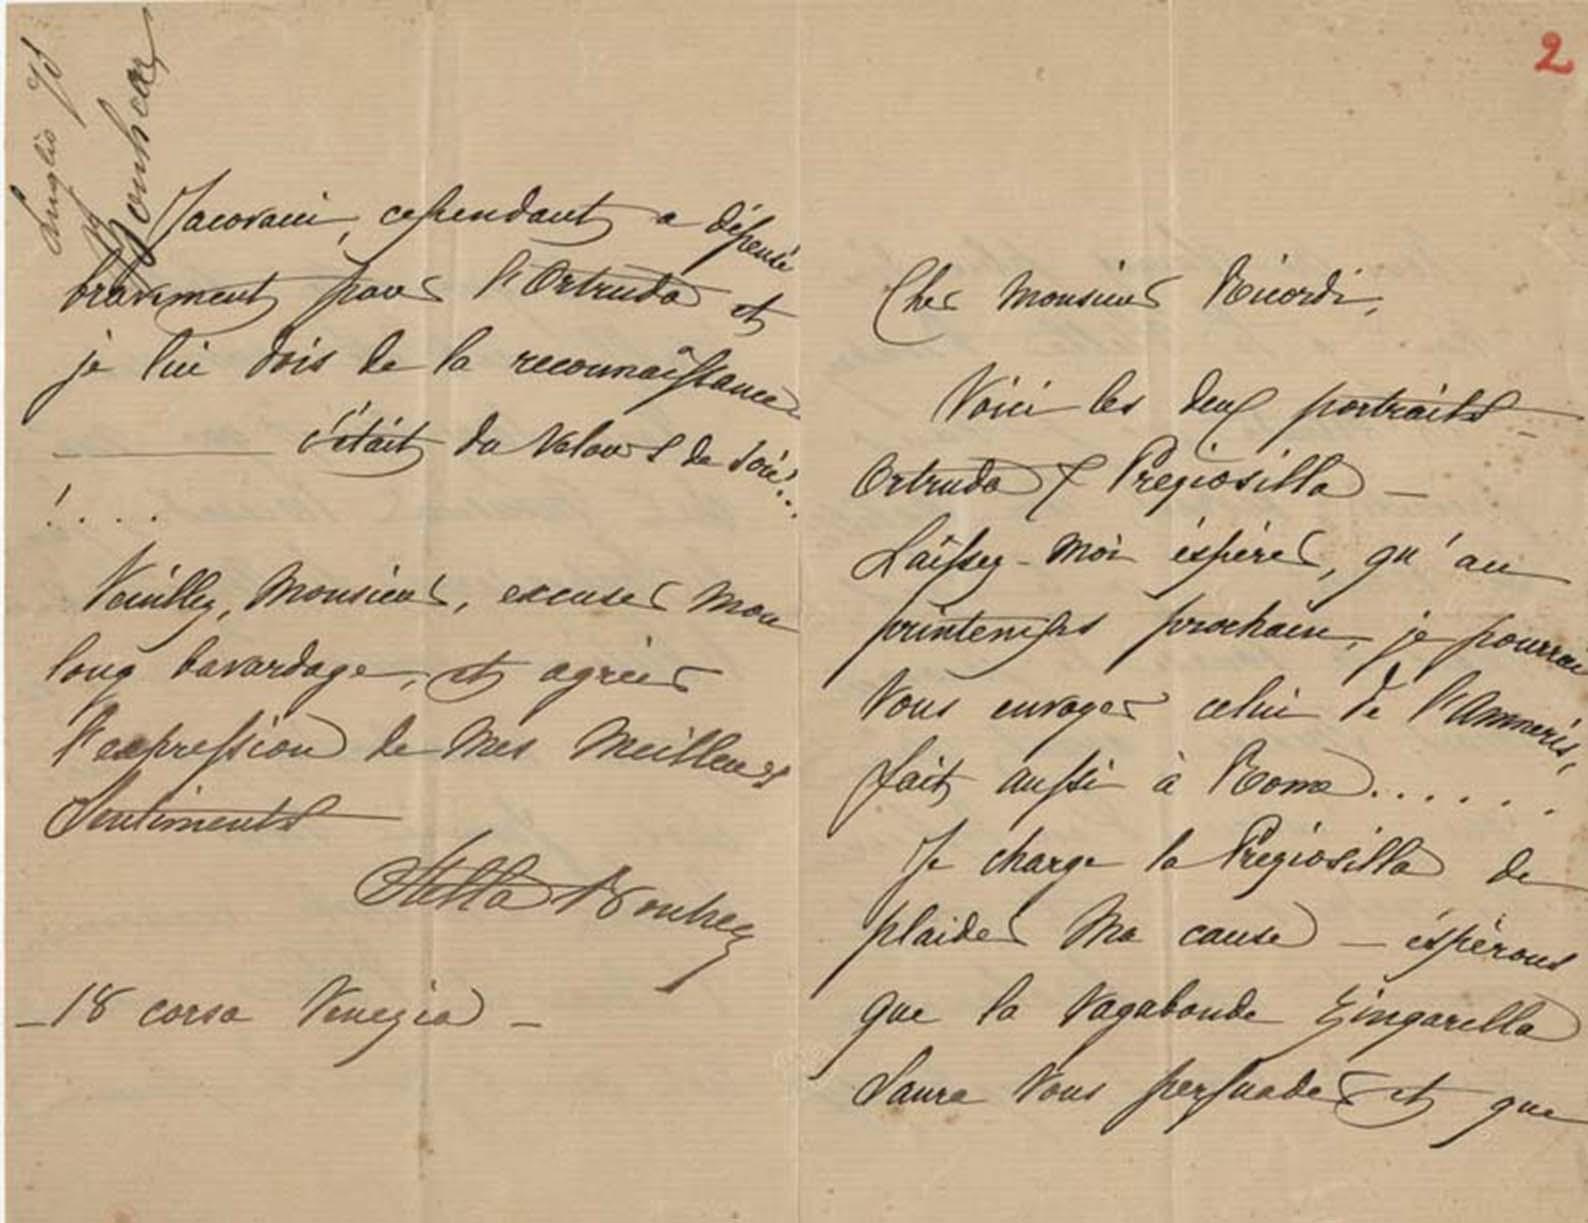 2
Cher Monsieur Ricordi,
Voici les deux portraits
Ortruda & Preziosilla —
Laissez-moi éspérer, qu'au
printemps prochain, je pourrai
Vous envoyer celui de l'Amneris,
fait aussi à Roma.......
Je charge la Preziosilla de
plaider ma cause — éspérons
que la vagabonde Zingarella
saura Vous persuader et que
Luglio 75
Bonheur
Jacovacci, cependant a dépensé
bravement pour l'Ortruda et
je lui dois de la reconnaîssance
— c'était du Velours de soie!..
!....
Veuillez, Monsieur, excuser mon
long bavardage, et agréer
l'expression de mes meilleurs
Sentiments
Stella Bonheur
— 18 corso Venezia —